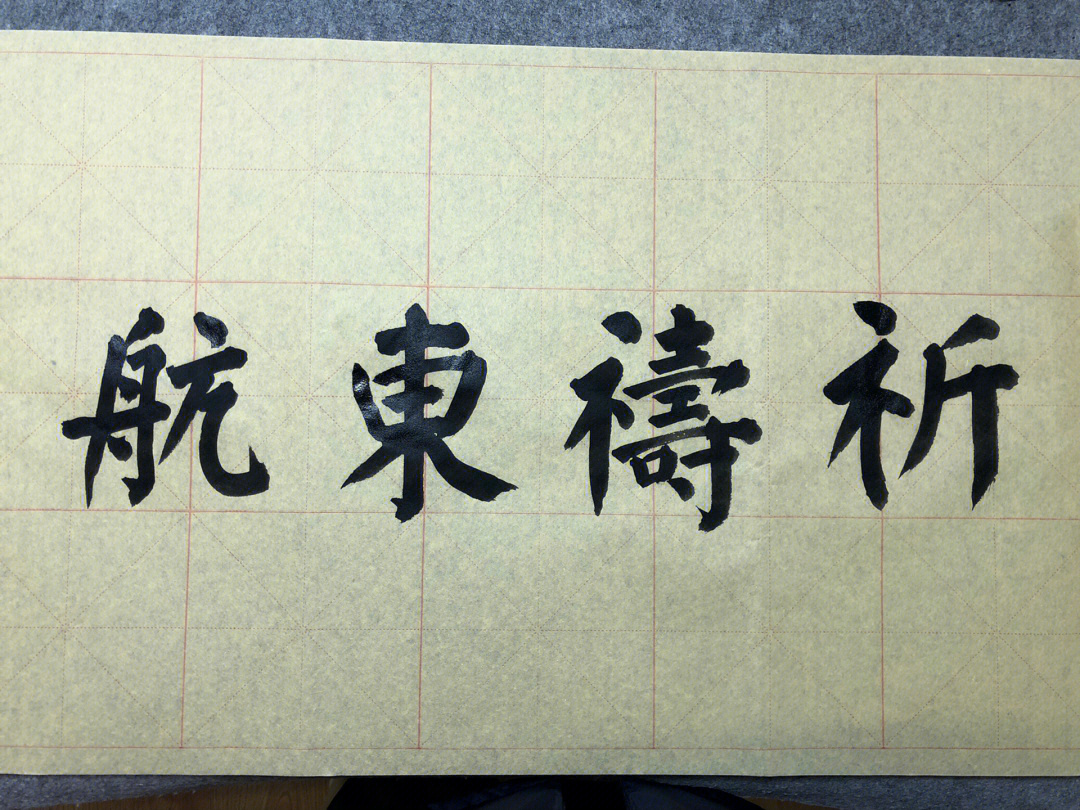 祈禱東航